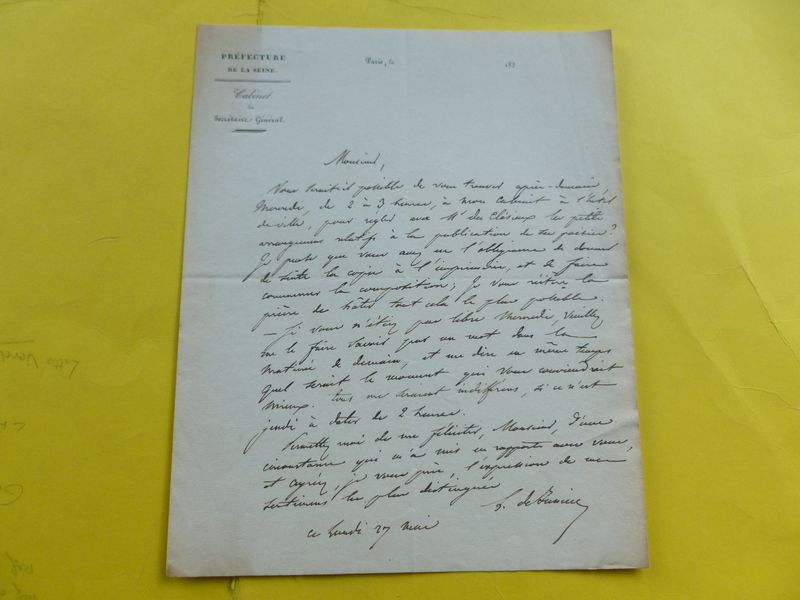 PRÉFECTURE
DE LA SEINE.
Cabinet
du
Secrétaire Général.
Paris, le 183
Monsieur,
Vous serait-il possible de vous trouver après-demain,
Mercredi, de 2 à 3 heures, à mon cabinet à l'hôtel
de ville, pour régler avec Mr du Clésieux les petits
arrangemens relatifs à la publication de ses poésies?
Je pense que vous avez eu l'obligeance de donner
de suite la copie à l'imprimerie, et de faire
commencer la composition; Je vous réitère la
prière de hâter tout cela le plus possible.
— Si vous n'étiez pas libre Mercredi, veuillez
me le faire savoir par un mot dans la
matinée de demain, et me dire en même temps
quel serait le moment qui vous conviendrait
mieux. tous me seraient indifférens, si ce n'est
jeudi à dater de 2 heures.
Permettez moi de me féliciter, Monsieur, d'une
circonstance qui m'a mis en rapports avec vous,
et agréez, je vous prie, l'expression de mes
sentimens les plus distingués
ce lundi 27 mai